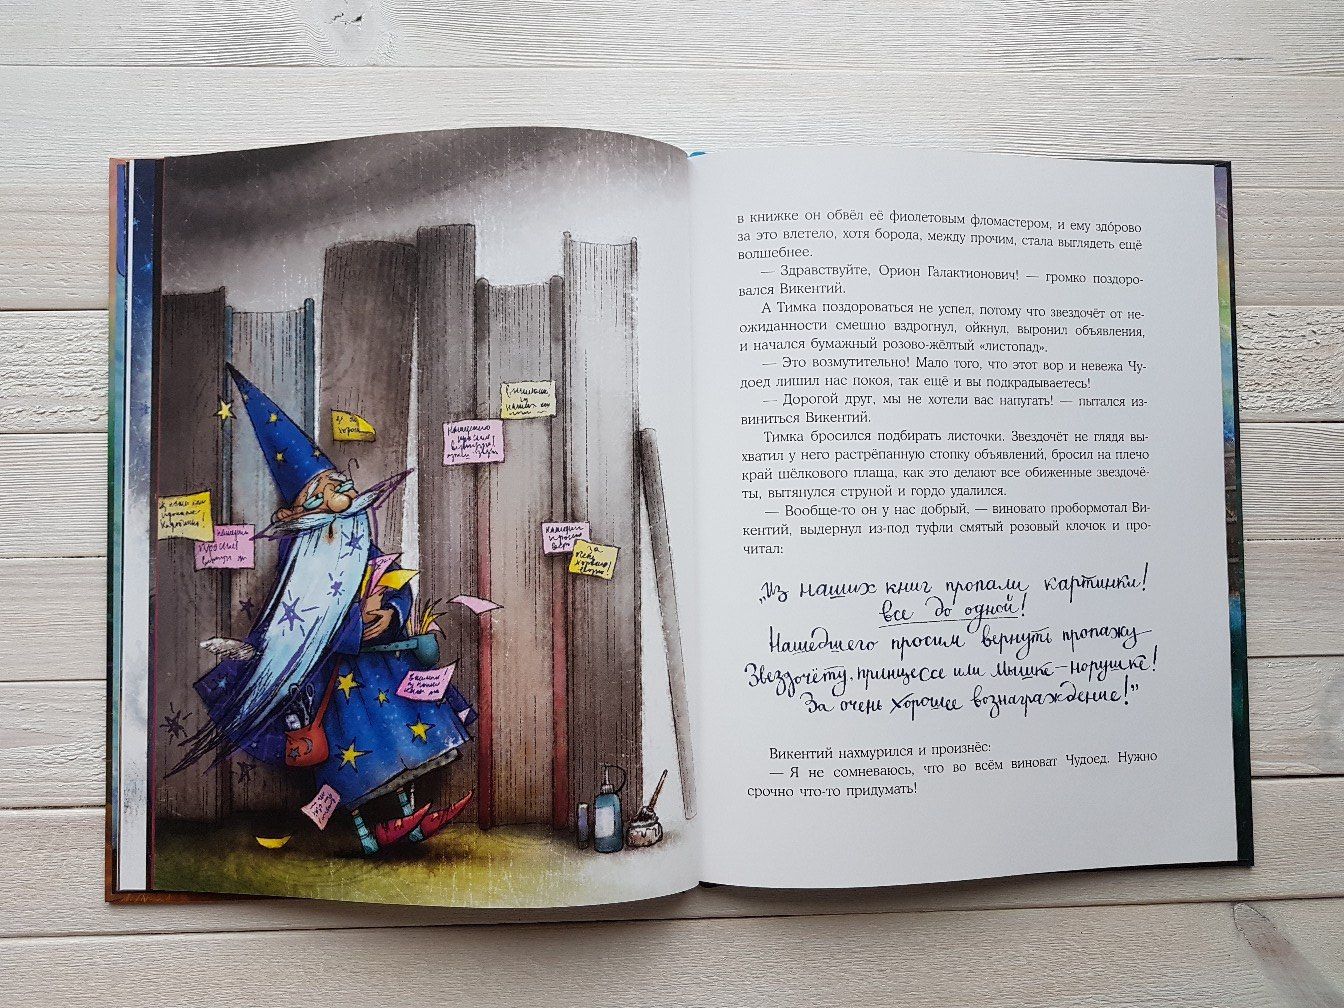 нашедшего
просим
вернуть
просим!
за
очень
хорошее
в книжке он обвёл её фиолетовым фломастером, и ему здо́рово
за это влетело, хотя борода, между прочим, стала выглядеть ещё
волшебнее.
— Здравствуйте, Орион Галактионович! — громко поздоро-
вался Викентий.
А Тимка поздороваться не успел, потому что звездочёт от не-
ожиданности смешно вздрогнул, ойкнул, выронил объявления,
и начался бумажный розово-жёлтый «листопад».
— Это возмутительно! Мало того, что этот вор и невежа Чу-
доед лишил нас покоя, так ещё и вы подкрадываетесь!
— Дорогой друг, мы не хотели вас напугать! — пытался из-
виниться Викентий.
Тимка бросился подбирать листочки. Звездочёт не глядя вы-
хватил у него растрёпанную стопку объявлений, бросил на плечо
край шёлкового плаща, как это делают все обиженные звездочё-
ты, вытянулся струной и гордо удалился.
— Вообще-то он у нас добрый, — виновато пробормотал Ви-
кентий, выдернул из-под туфли смятый розовый клочок и про-
читал:
„Из наших книг пропали картинки!
все до одной!
Нашедшего просим вернуть пропажу
Звездочёту, принцессе или Мышке-норушке!
За очень хорошее вознаграждение!”
Викентий нахмурился и произнёс:
— Я не сомневаюсь, что во всём виноват Чудоед. Нужно
срочно что-то придумать!